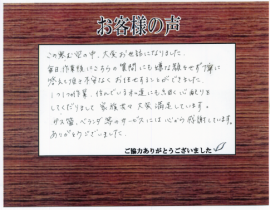 お客様の声
この寒い空の中、大変お世話になりました。
毎日作業後にこちらの質問にも嫌な顔をせず丁寧に
答えて頂き不安なくお任せすることができました。
している作業、住んでいる方の違にも気配り心配りを
してくださりまして家族共々大変満足しています。
サス窓、ベランダ等のサービスには心から感謝しています。
ありがとうございました。
ご協力ありがとうございました